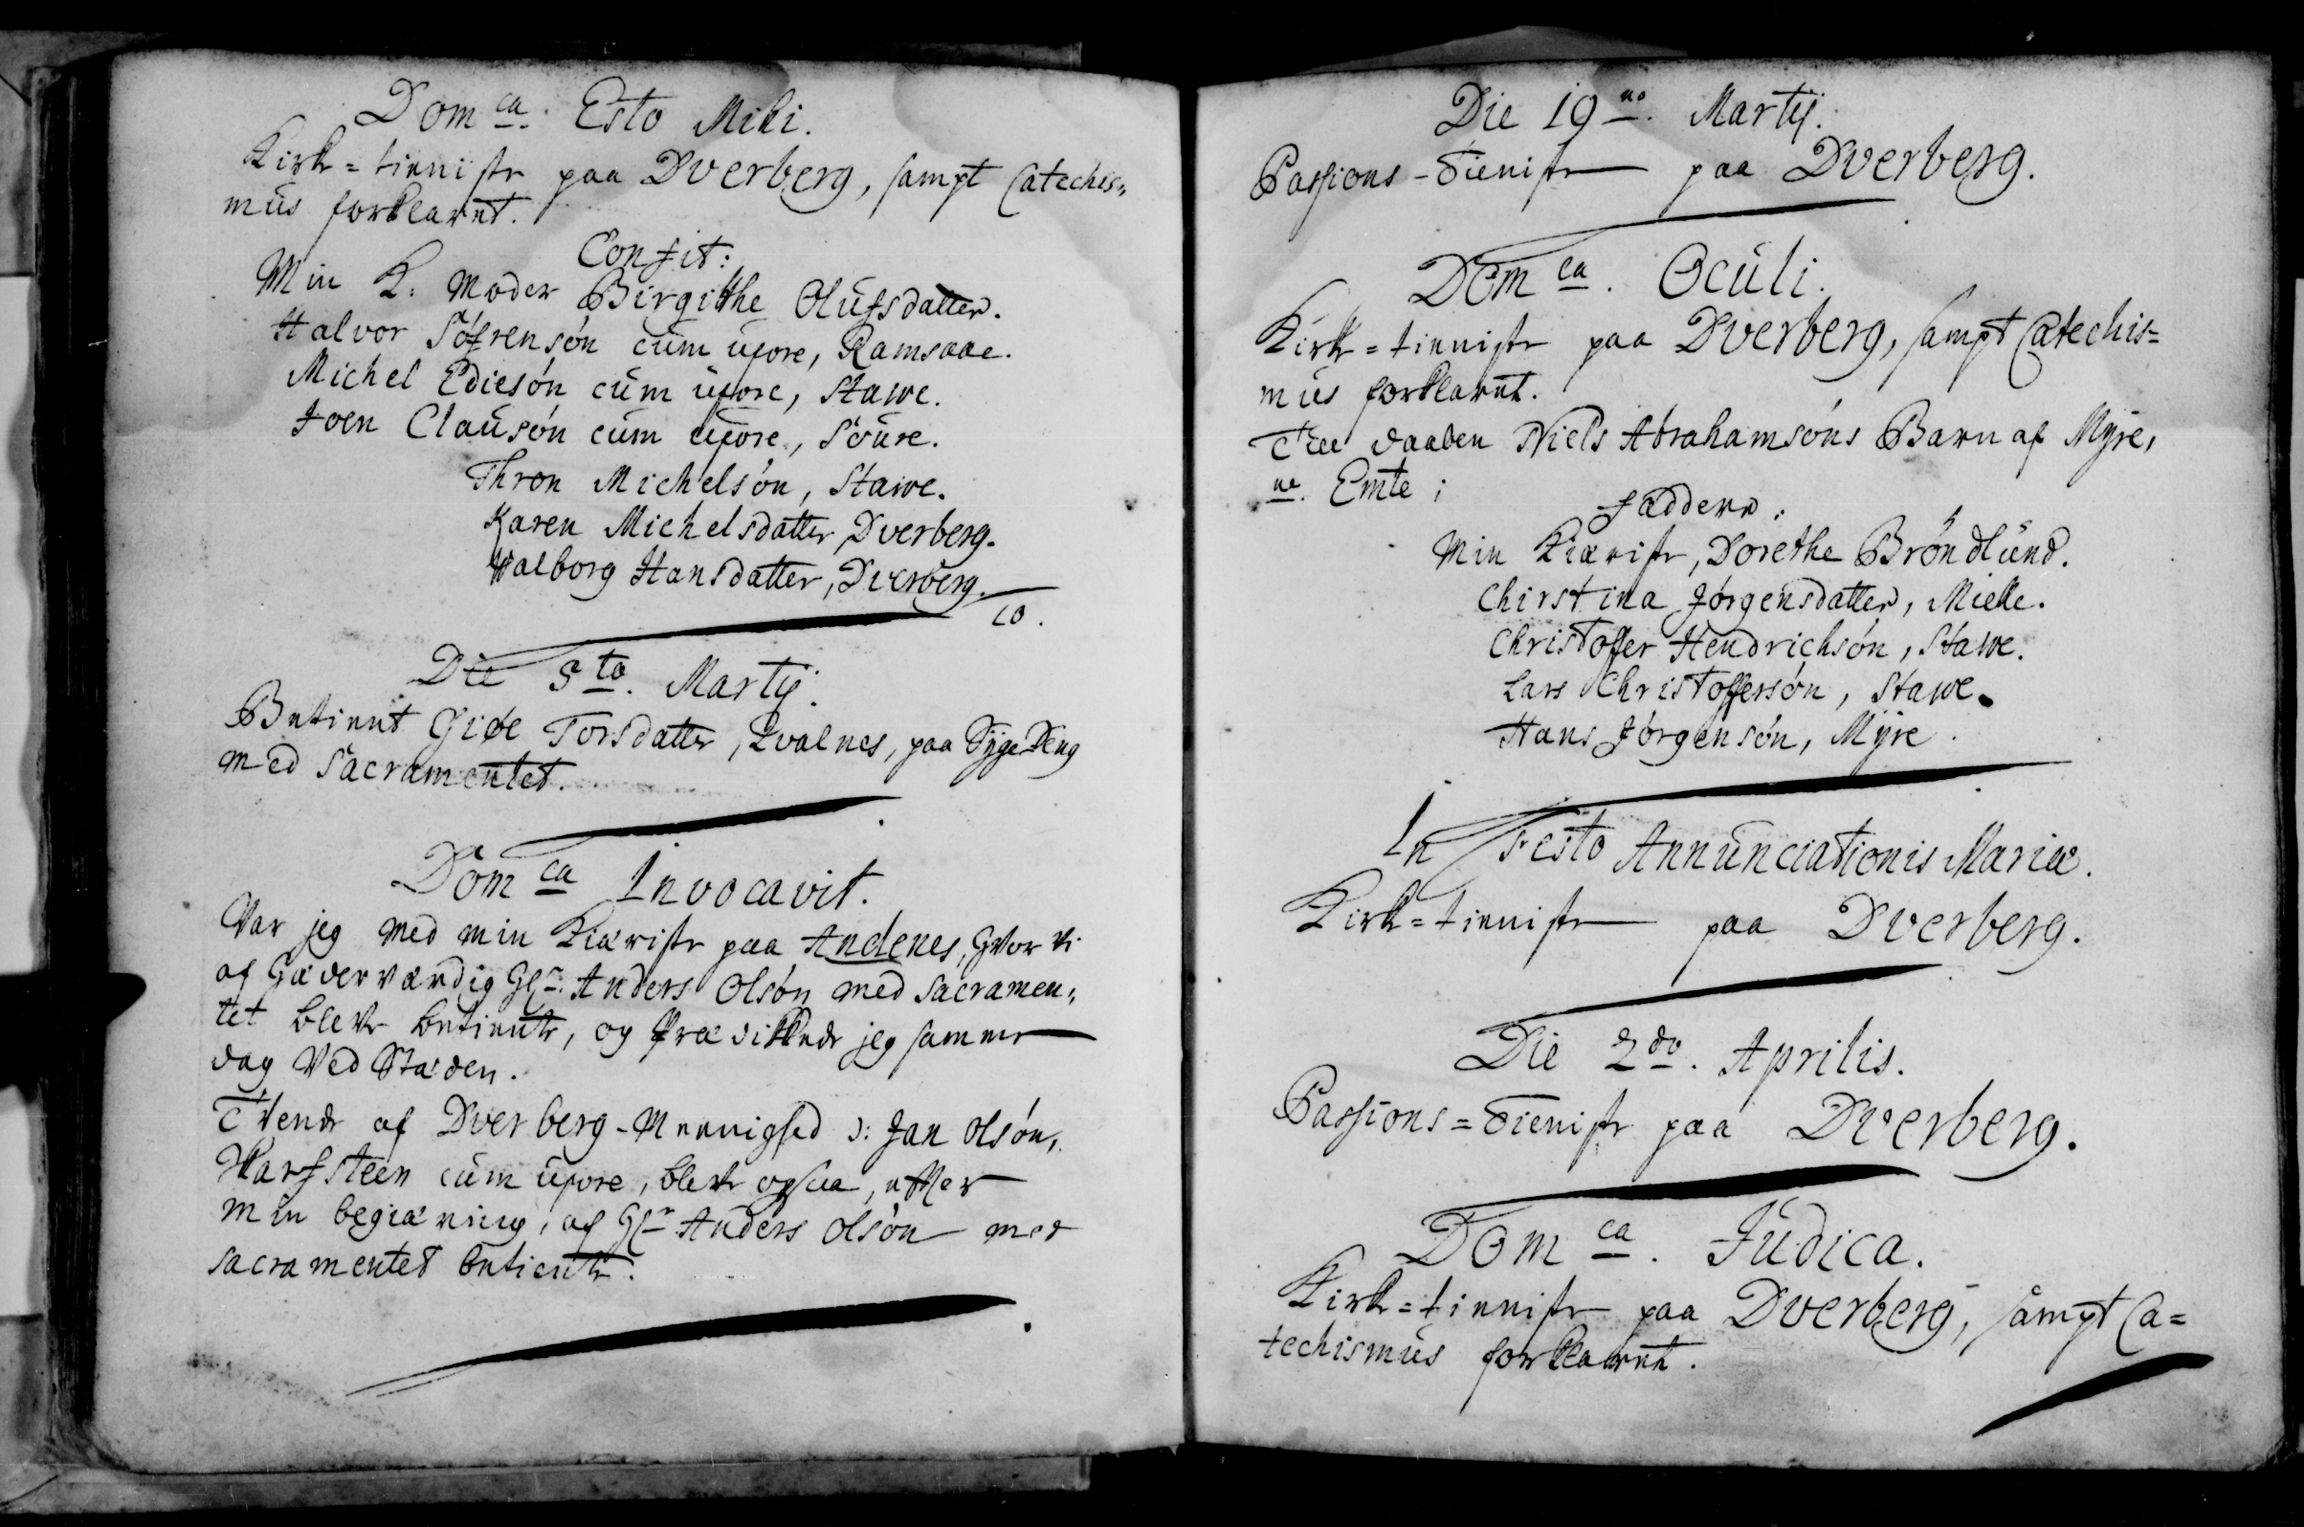 Dom ca. Esto Mihi.
Kirke=tieniste paa Dverberg, sampt Catechis=
mus forklaret.
Confit:
Min K. Moder Birgithe Olufsdatter.
Halvor Søfrensøn cum uxore, Ramsaae.
Michel Ediesøn cum uxore, Stawe.
Joen Clausøn cum uxore, Søure.
Thron Michelsøn, Stawe.
Karen Michelsdatter, Dverberg.
Walborg Hansdatter, Dverberg.
10.
Die 5to. Martij.
Betient Giøe Torsdatter, Qvalnes, paa Syge Seng
med Sacramentet.
Dom ca Invocavit.
Var jeg med min Kiæriste paa Andenes, hvor vi
af Hæderværdig Hr. Anders Olsøn med Sacramen=
tet bleve betiente, og Prædikede jeg samme
dag ved Stæden.
Tvende af Dverberg-Meenighed ɔ: Jan Olsøn,
Skarfsteen cum uxore, bleve ogsaa, effter
min begiæring, af Hr Anders Olsøn med
Sacramentet betiente.
Die 19no. Martij.
Passions-Tieniste paa Dverberg.
Dom ca. Oculi.
Kirke=tieniste paa Dverberg, sampt Catechis=
mus forklaret.
Til daaben Niels Abrahamsøns Barn af Myre,
ne. Emte;
Faddere.
Min Kiæriste, Dorethe Brøndlund.
Chirstina Jørgensdatter, Mielle.
Christoffer Hendrichsøn, Stawe.
Lars Christoffersøn, Stawe.
Hans Jørgensøn, Myre.
In Festo Annunciationis Mariæ.
Kirke=tieniste paa Dverberg.
Die 2do. Aprilis.
Passions=Tieniste paa Dverberg.
Dom ca. Judica.
Kirke=tieniste paa Dverberg, sampt Ca=
techismus forklaret.